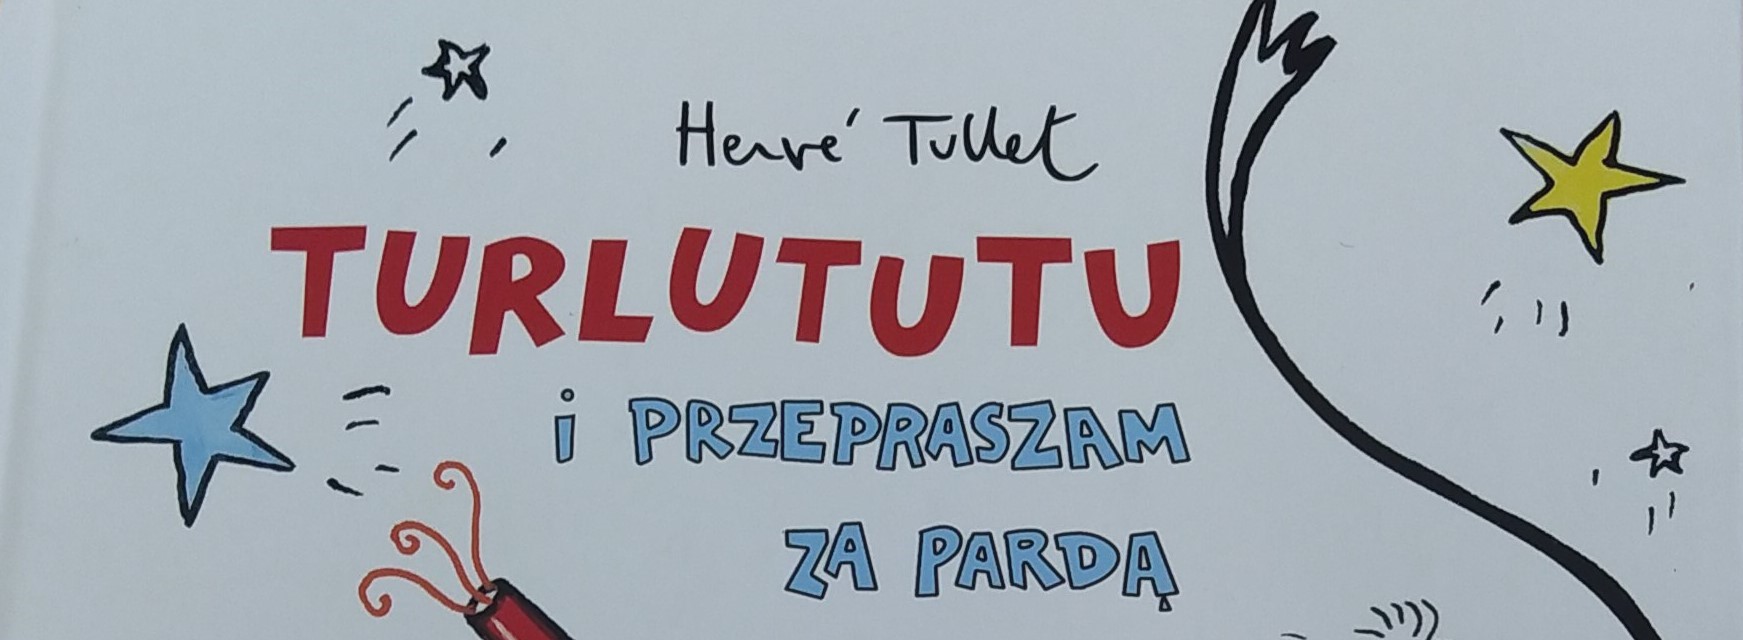 Hervé Tullet
TURLUTUTU
i PRZEPRASZAM
ZA PARDĄ